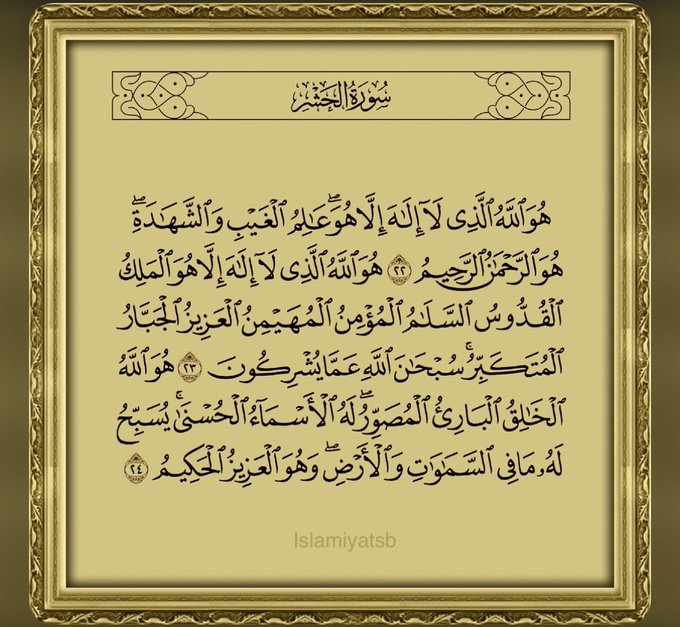 سُورَةُ الحَشْرِ
هُوَ اللَّهُ الَّذِي لَآ إِلَٰهَ إِلَّا هُوَ ۖ عَٰلِمُ الْغَيْبِ وَالشَّهَٰدَةِ ۖ
هُوَ الرَّحْمَٰنُ الرَّحِيمُ ٢٢ هُوَ اللَّهُ الَّذِي لَآ إِلَٰهَ إِلَّا هُوَ الْمَلِكُ
الْقُدُّوسُ السَّلَٰمُ الْمُؤْمِنُ الْمُهَيْمِنُ الْعَزِيزُ الْجَبَّارُ
الْمُتَكَبِّرُ ۚ سُبْحَٰنَ اللَّهِ عَمَّا يُشْرِكُونَ ٢٣ هُوَ اللَّهُ
الْخَٰلِقُ الْبَارِئُ الْمُصَوِّرُ ۖ لَهُ الْأَسْمَآءُ الْحُسْنَىٰ ۚ يُسَبِّحُ
لَهُۥ مَا فِي السَّمَٰوَٰتِ وَالْأَرْضِ ۖ وَهُوَ الْعَزِيزُ الْحَكِيمُ ٢٤
Islamiyatsb